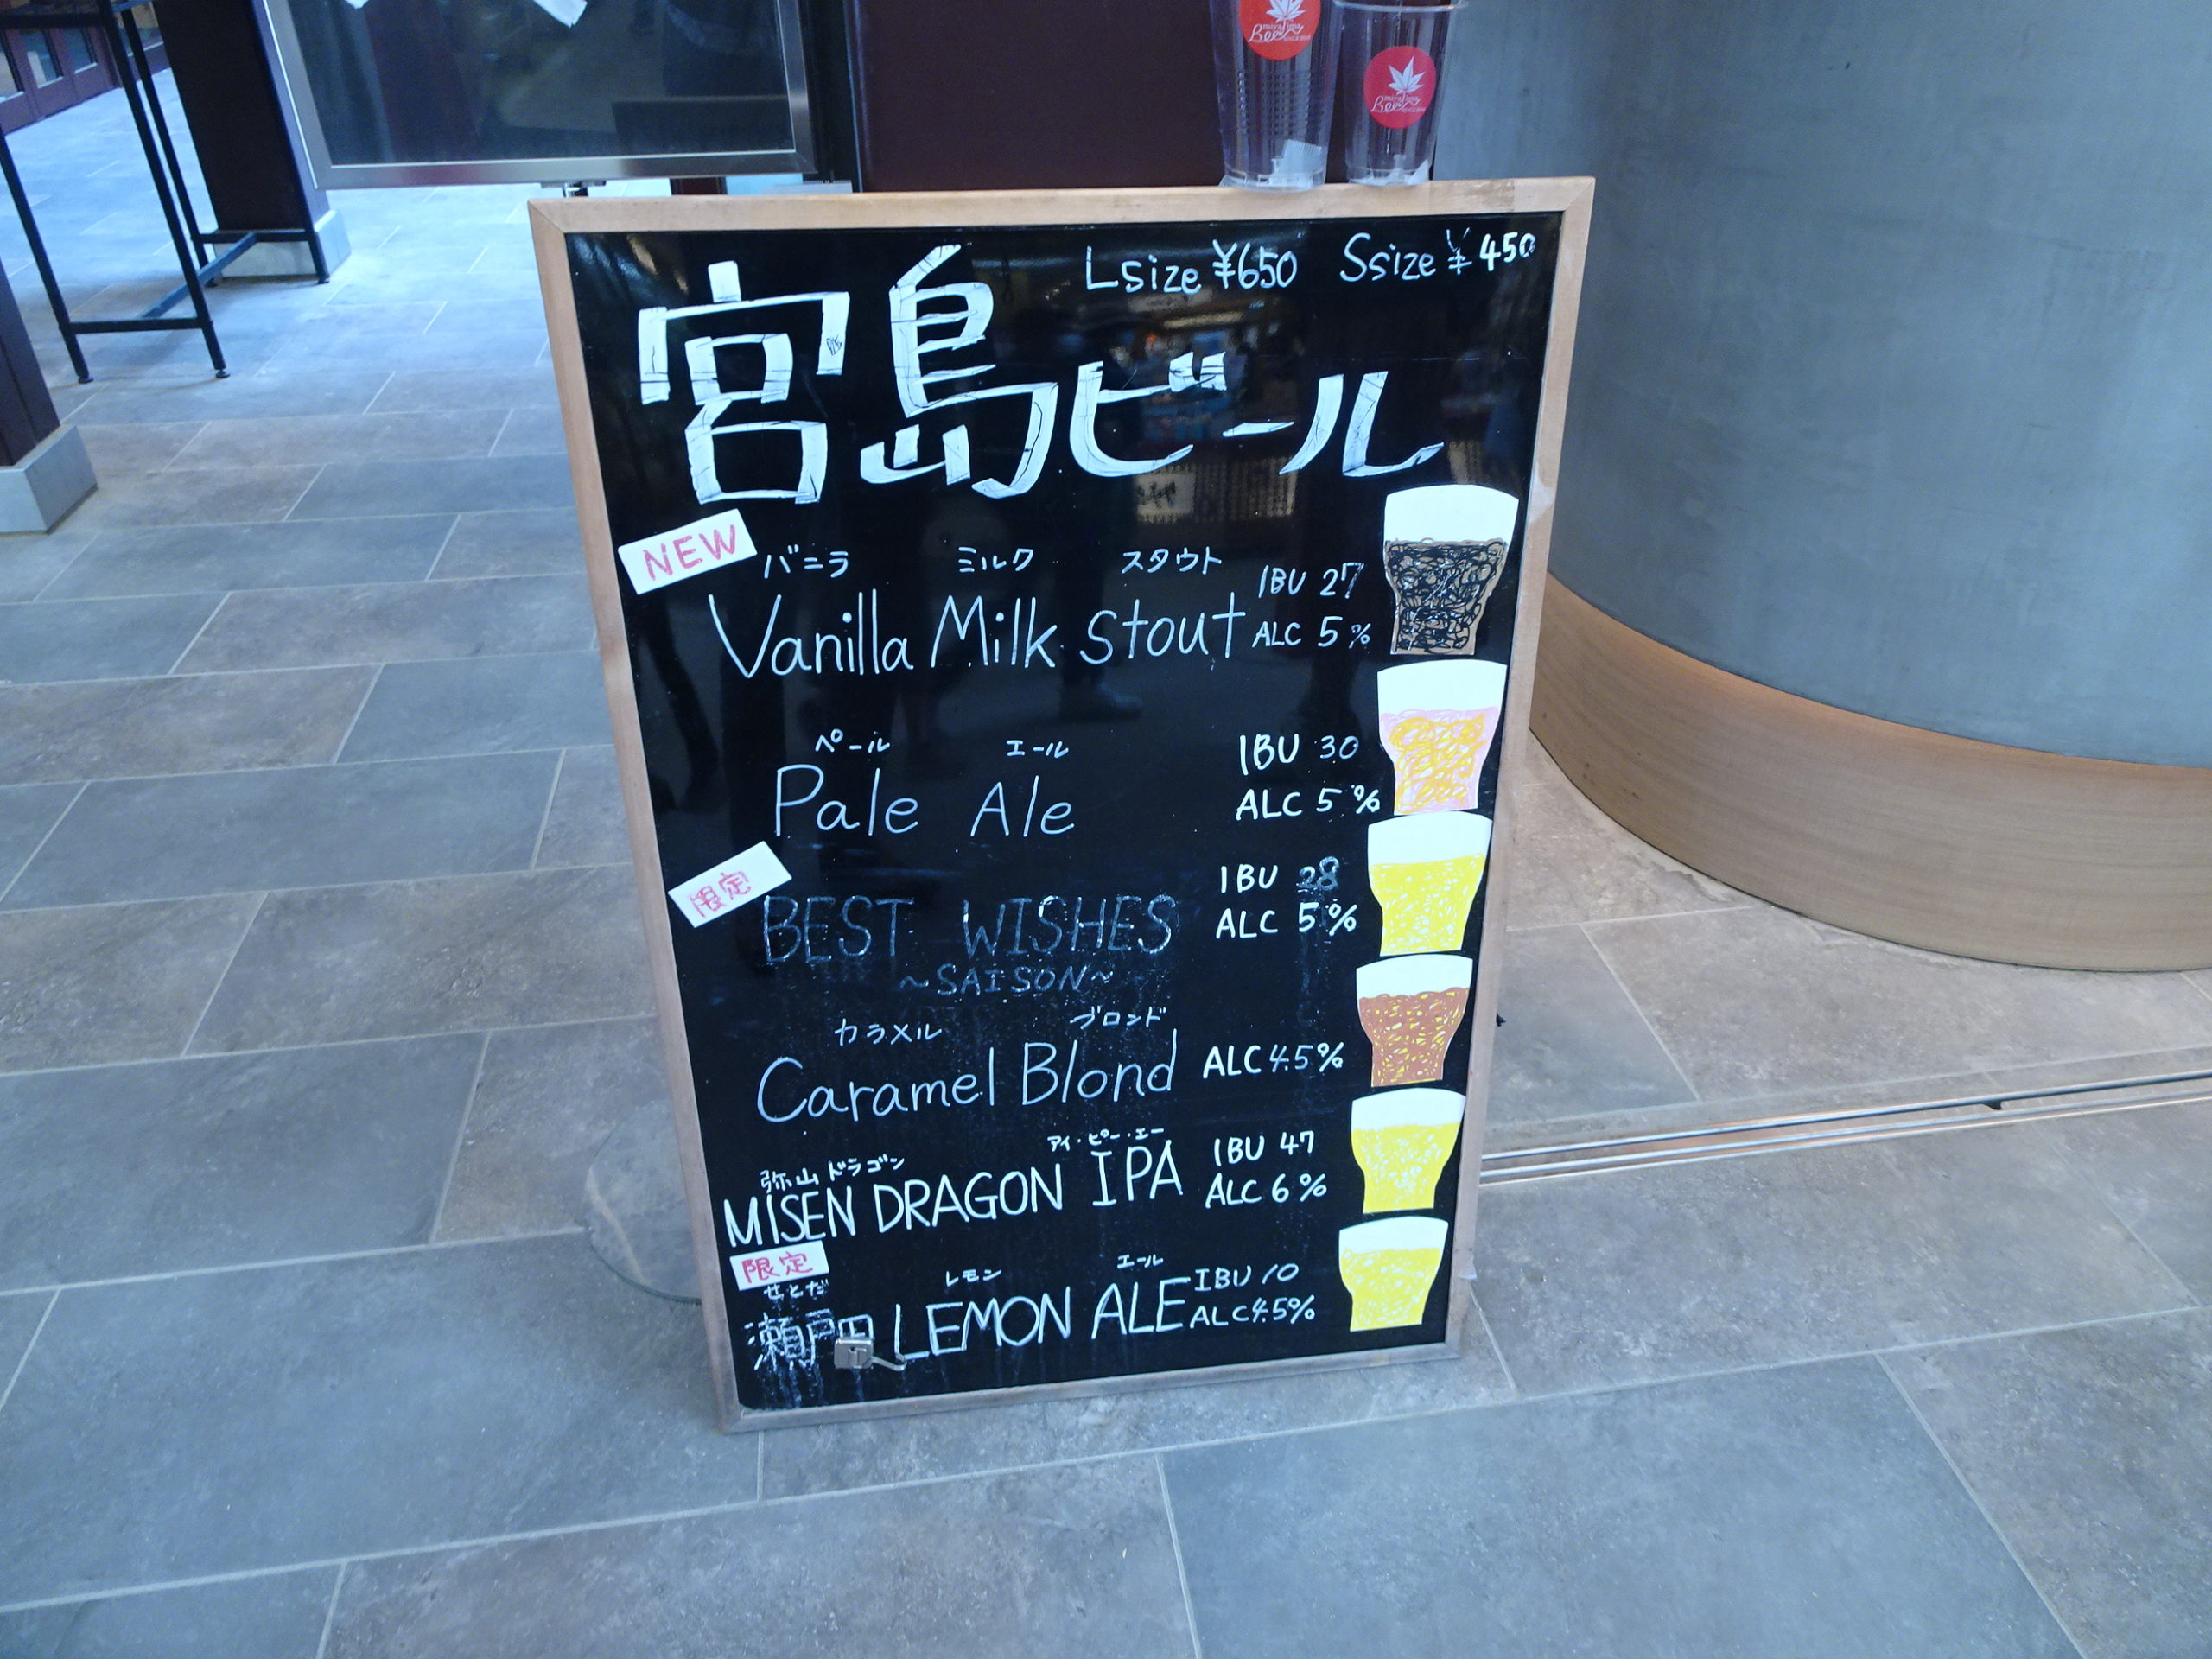 miyajima Beer
miyajima Beer
Lsize ¥650 Ssize ¥450
宮島ビール
NEW
バニラ ミルク スタウト
Vanilla Milk Stout
IBU 27
ALC 5%
ペール エール
Pale Ale
IBU 30
ALC 5%
限定
BEST WISHES
~SAISON~
IBU 28
ALC 5%
カラメル ブロンド
Caramel Blond
ALC 4.5%
弥山ドラゴン アイ・ピー・エー
MISEN DRAGON IPA
IBU 47
ALC 6%
限定
せとだ レモン エール
瀬戸田 LEMON ALE
IBU 10
ALC 4.5%